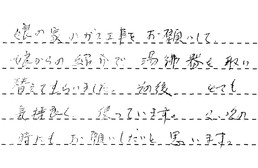 娘の家のガス工事をお願いして、
娘からの紹介で 湯沸器を取り
替えてもらいました。 とても
気持良く 使っています。
時にも お願いしたいと思います。